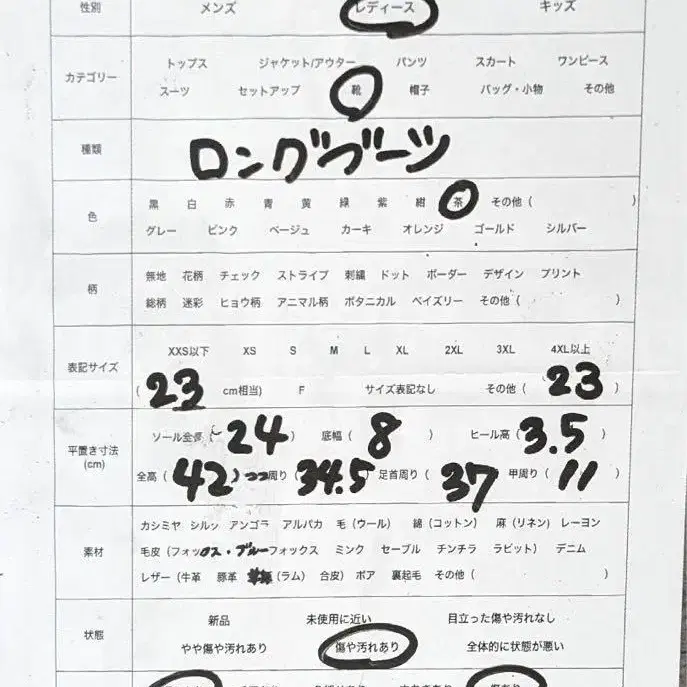 性別 メンズ レディース キッズ
トップス ジャケット/アウター パンツ スカート ワンピース
カテゴリー
スーツ セットアップ 靴 帽子 バッグ・小物 その他
種類 ロングブーツ
黒 白 赤 青 黄 緑 紫 紺 茶 その他 ( )
色
グレー ピンク ベージュ カーキ オレンジ ゴールド シルバー
無地 花柄 チェック ストライプ 刺繍 ドット ボーダー デザイン プリント
柄
総柄 迷彩 ヒョウ柄 アニマル柄 ボタニカル ペイズリー その他 ( )
XXS以下 XS S M L XL 2XL 3XL 4XL以上
表記サイズ
( 23 cm相当) F サイズ表記なし その他 ( 23 )
ソール全長 ( 24 ) 底幅 ( 8 ) ヒール高 ( 3.5 )
平置き寸法
(cm)
全高 ( 42 ) 周り ( 34.5 足首周り ( 37 甲周り ( 11 )
カシミヤ シルク アンゴラ アルパカ 毛 (ウール) 綿 (コットン) 麻 (リネン) レーヨン
素材
毛皮 (フォックス・ブルーフォックス ミンク セーブル チンチラ ラビット) デニム
レザー (牛革 豚革 (ラム) 合皮) ボア 裏起毛 その他 ( )
新品 未使用に近い 目立った傷や汚れなし
状態
やや傷や汚れあり 傷や汚れあり 全体的に状態が悪い